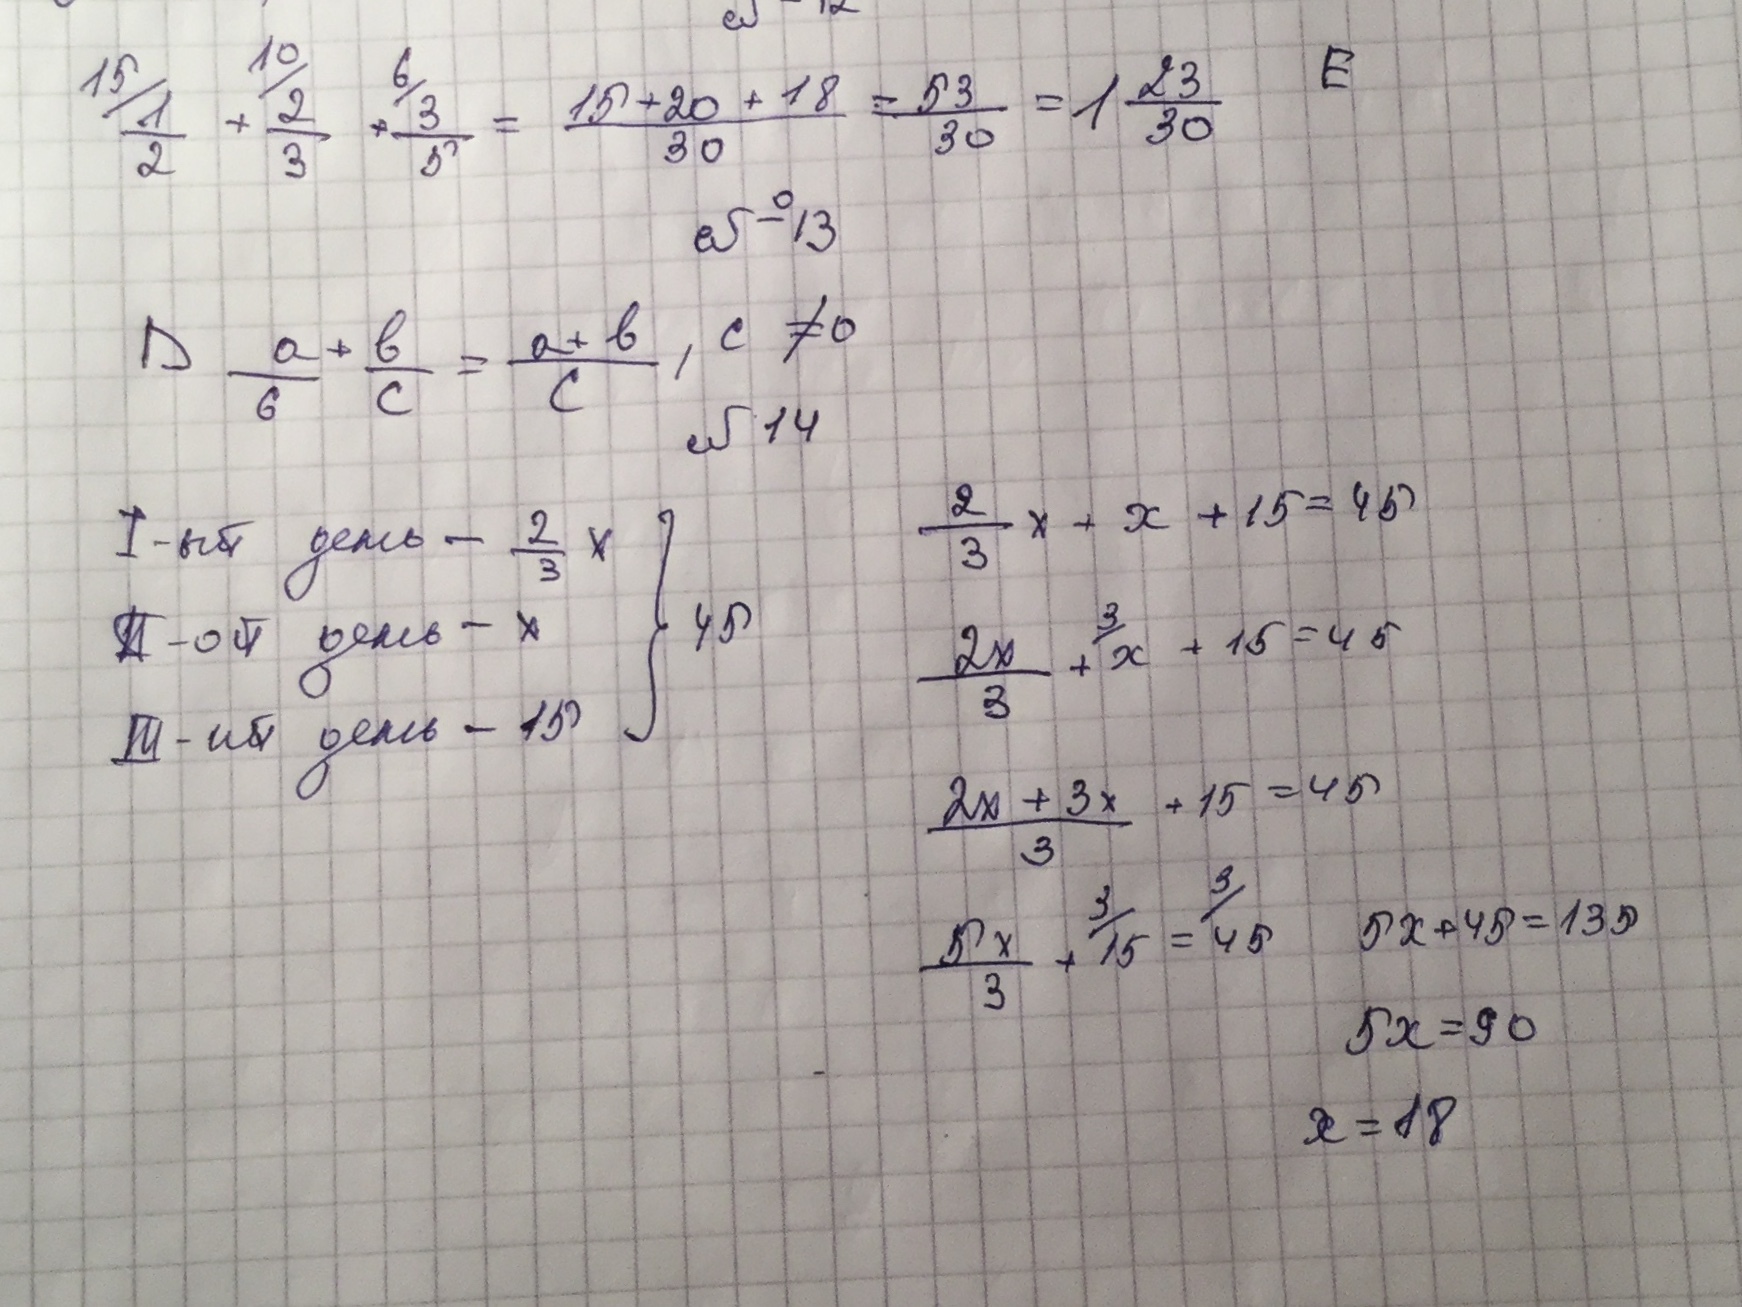 № 12
15/ 10/ 6/
1/2 + 2/3 + 3/5 = (15+20+18)/30 = 53/30 = 1 23/30 E
№ 13
D a/6 + b/c = (a+b)/c, c ≠ 0
№ 14
I-ый день – 2/3 x
II-ой день – x
III-ий день – 15
} 45
2/3 x + x + 15 = 45
2x/3 + 3/x + 15 = 45
(2x + 3x)/3 + 15 = 45
5x/3 + 3/15 = 3/45
5x+45=135
5x=90
x=18